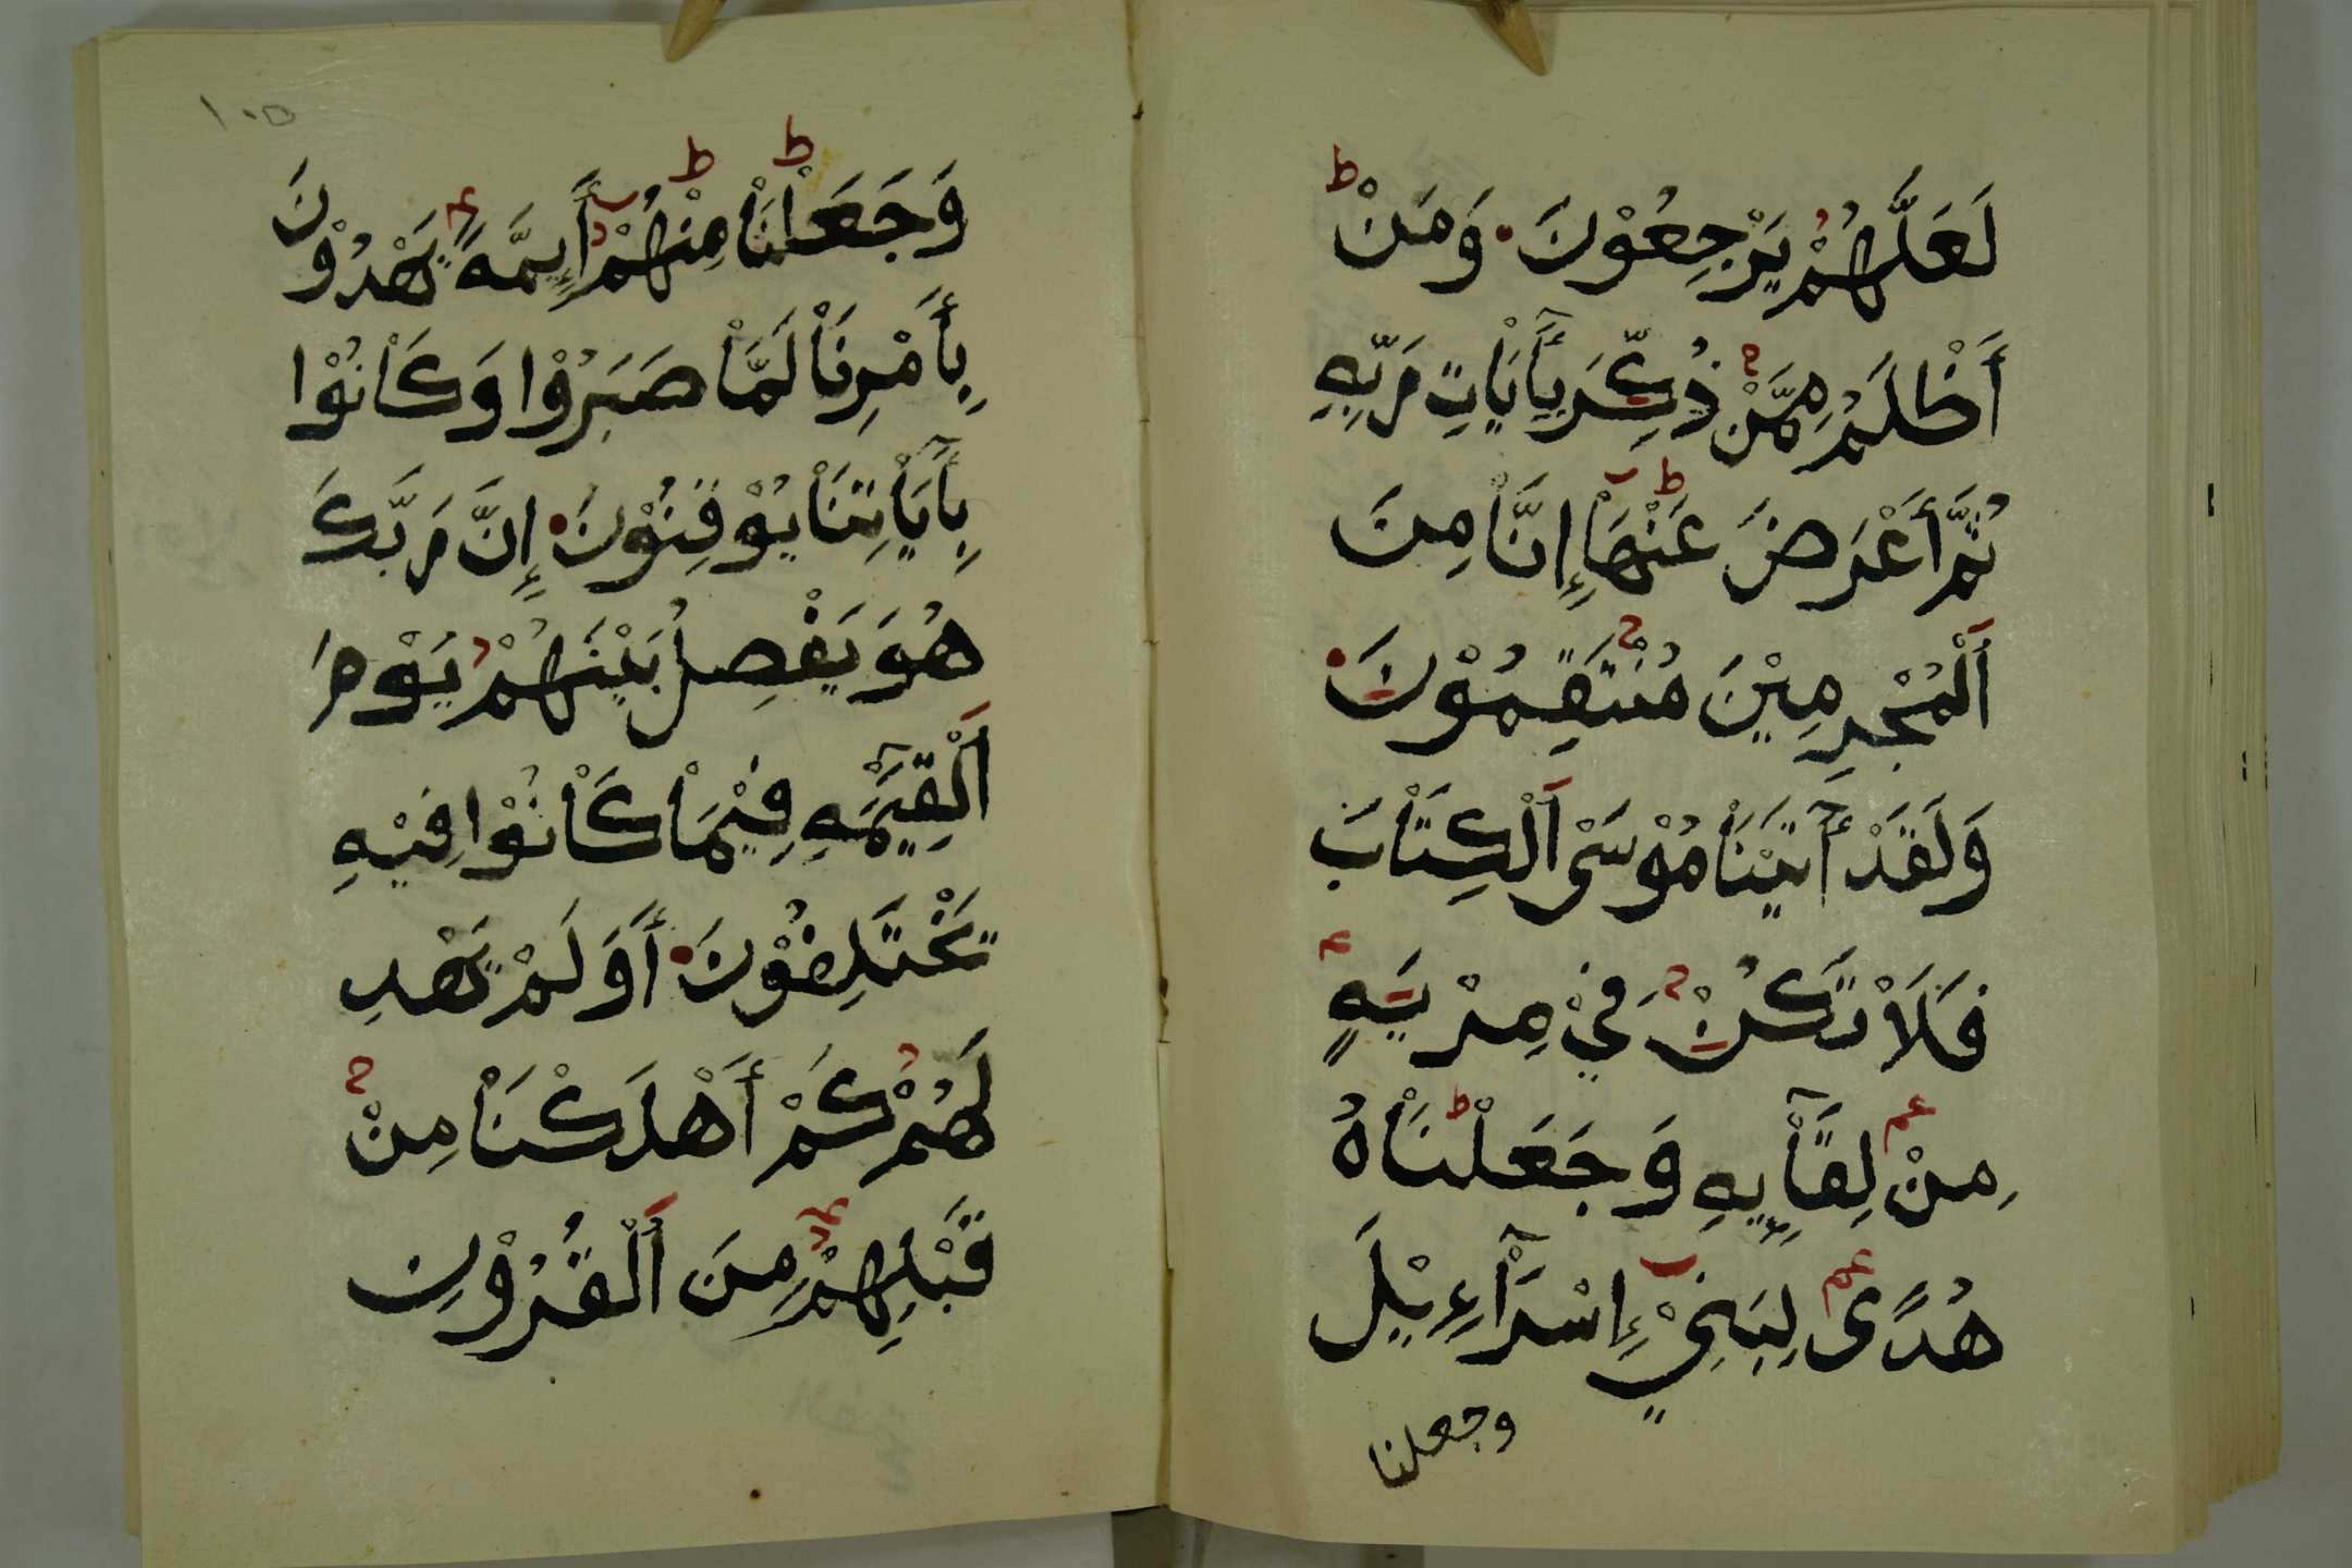 لَعَلَّهُمْ يَرْجِعُوْنَ۰ وَمَنْ
أَظْلَمُ مِمَّنْ ذُكِّرَ بِأٓيَاتِ رَبِّهِ
ثُمَّ أَعْرَضَ عَنْهَا إِنَّا مِنَ
اَلْمُجْرِمِيْنَ مُنْتَقِمُوْنَ۰
وَلَقَدْ أٓتَيْنَا مُوْسَى اَلْكِتَابَ
فَلَا تَكُنْ فِيْ مِرْيَهٍ
مِنْ لِقَآيِٕهِ وَجَعَلْنَاهُ
هُدًى لِبَنِيْ إِسْرَآءِيْلَ
وجعلنا
١٠٥
وَجَعَلْنَا مِنْهُمْ أَيِٕمَّهً يَهْدُوْنَ
بِأَمْرِنَا لَمَّا صَبَرُوْا وَكَانُوْا
بِأٓيَاتِنَا يُوْقِنُوْنَ۰ إِنَّ رَبَّكَ
هُوَ يَفْصِلُ بَيْنَهُمْ يَوْمَ
اَلْقِيٰمَهِ فِيْمَا كَانُوْا فِيْهِ
يَخْتَلِفُوْنَ۰ أَوَلَمْ يَهْدِ
لَهُمْ كَمْ أَهْلَكْنَا مِنْ
قَبْلِهِمْ مِنَ اَلْقُرُوْنِ